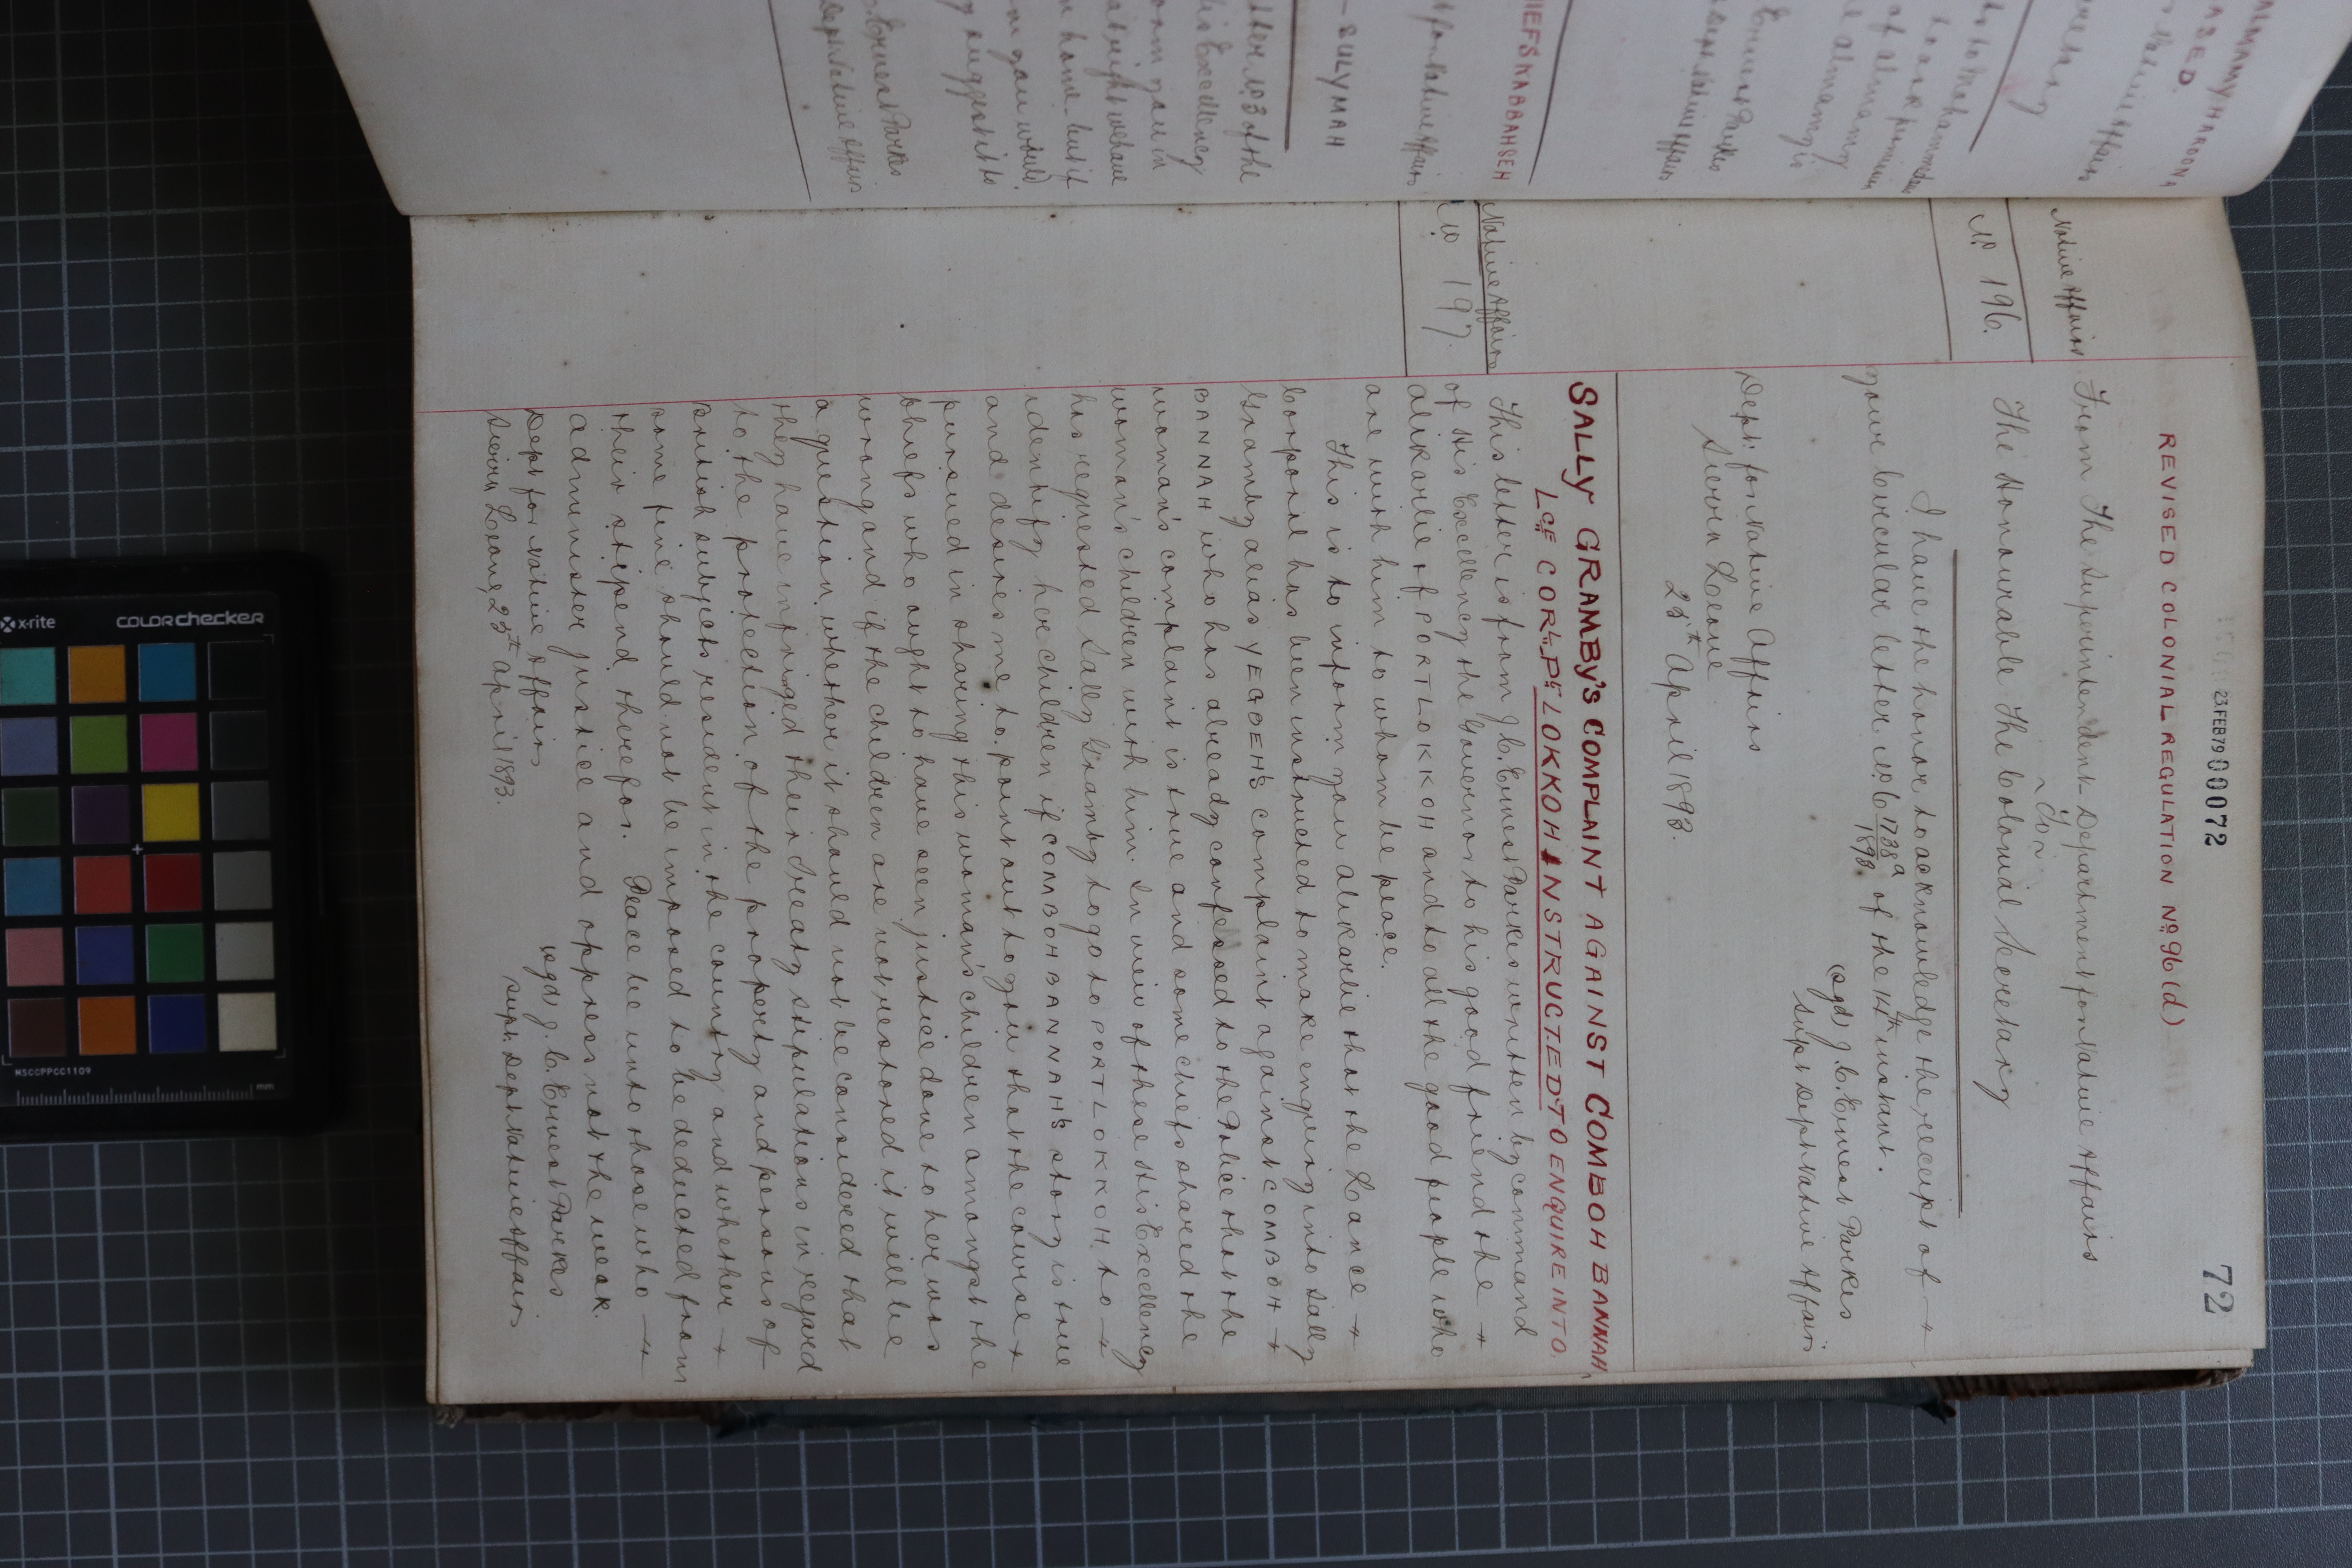 23.FEB79 00072
72
REVISED COLONIAL REGULATION No 96 (d)
Native Affairs
From The Superintendent Department for Native Affairs
To
The Honourable The Colonial Secretary
No 196.
I have the honor to acknowledge the receipt of
your Circular letter No C 1738a/1893 of the 14th instant.
(sgd) J. C. Ernest Parkes
Supt Dept Native Affairs
Dept: for Native Affairs
Sierra Leone
25th April 1893.
SALLY GRAMBY'S COMPLAINT AGAINST COMBOH BANNAH
LCE CORPL PT LOKKOH INSTRUCTED TO ENQUIRE INTO
Native Affairs
No 197.
This letter is from J. C. Ernest Parkes written by command
of His Excellency the Governor to his good friend the
Alikarlie of PORT LOKKOH and to all the good people who
are with him to whom be peace.
This is to inform you Alikarlie that the Lance
Corporal has been instructed to make enquiry into Sally
Gramby alias YEGBEH'S complaint against COMBOH
BANNAH who has already confessed to the Police that the
woman's complaint is true and some chiefs shared the
woman's children with him. In view of these His Excellency
has requested Sally Gramby to go to PORT LOKKOH to
identify her children if COMBOH BANNAH'S story is true
and desires me to point out to you that the course
pursued in sharing this woman's children amongst the
chiefs who ought to have seen justice done to her was
wrong and if the children are not restored it will be
a question whether it should not be considered that
they have infringed their treaty stipulations in regard
to the protection of the property and persons of
British subjects resident in the country and whether
some fine should not be imposed to be deducted from
their stipend therefor. Peace be unto those who
administer justice and oppress not the weak.
Dept for Native Affairs
(sgd) J. C. Ernest Parkes
Sierra Leone, 25th April 1893.
Supt. Dept Native Affairs
ALIMAMY HAROONA
Native Affairs
of Alimamy
Alimamy is
Ernest Parkes
Dept Native Affairs
CHIEFS KABBAH SEH
for Native Affairs
- SULYMAH
letter No 3 of the
His Excellency
home but if
you would
suggest it to
Ernest Parkes
Dept Native Affairs
x-rite
colorchecker
MSCCPPCC1109
mm